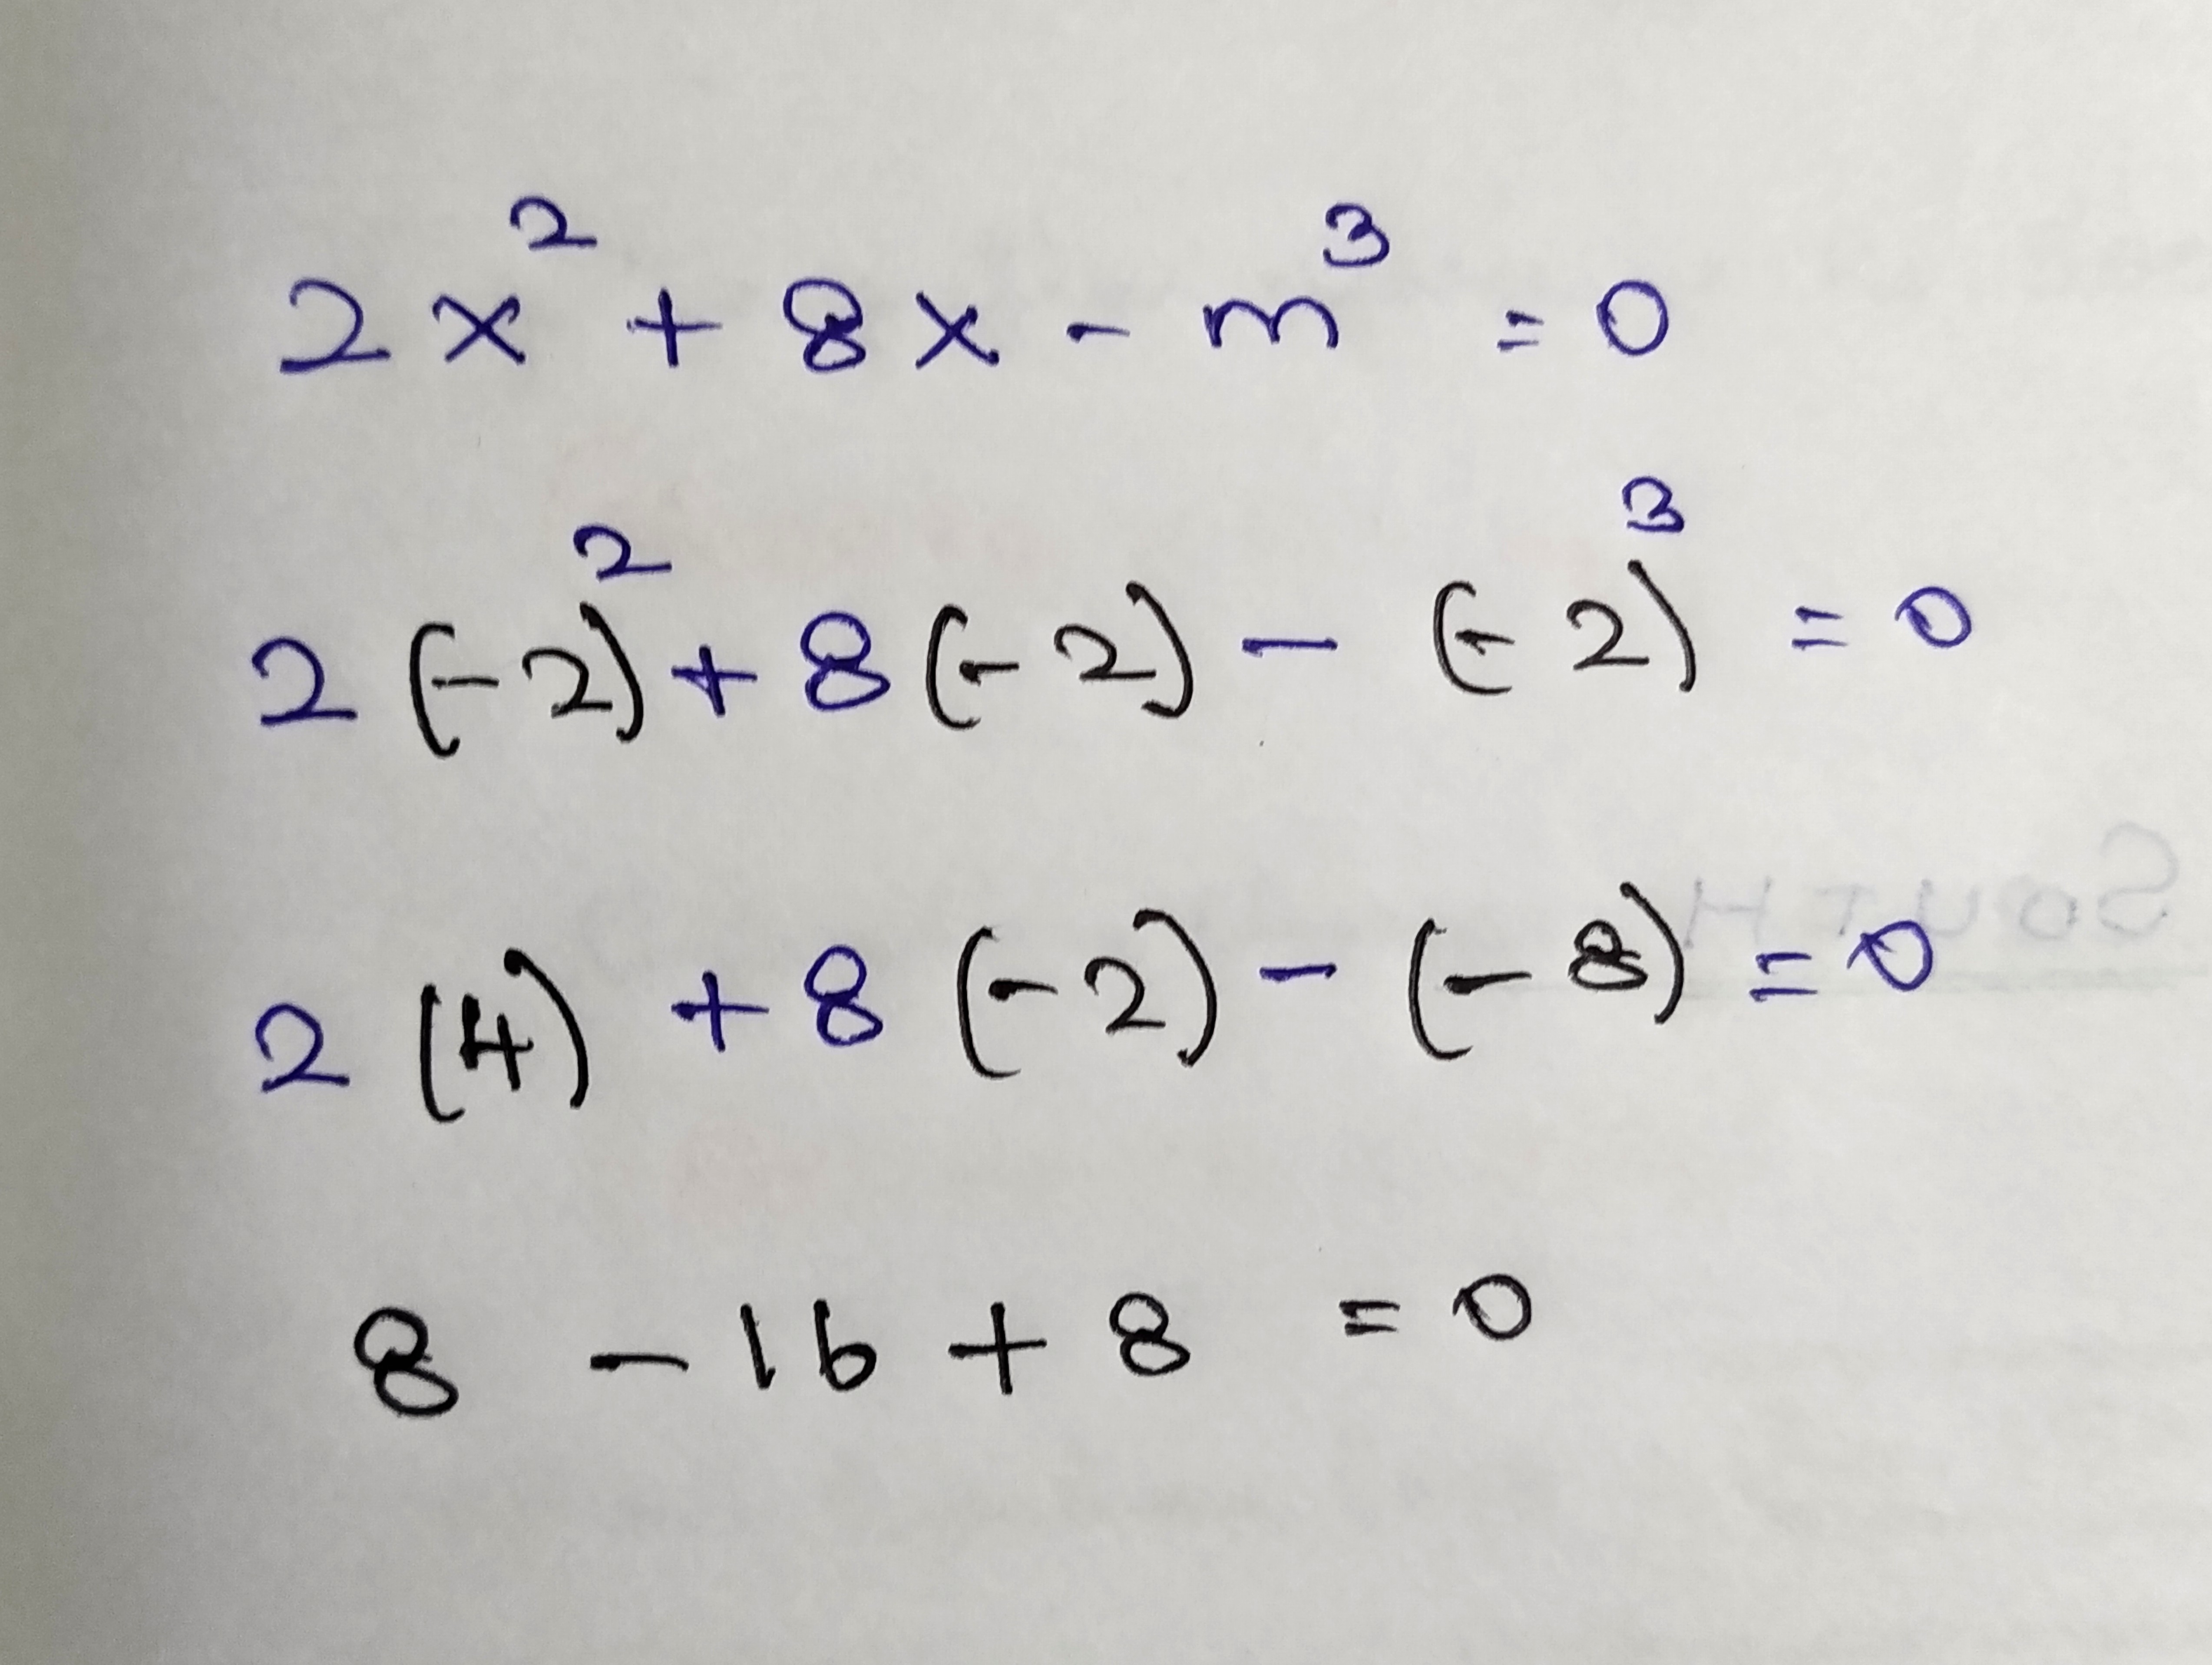 2x² + 8x - m³ = 0
2(-2)² + 8(-2) - (-2)³ = 0
2(4) + 8(-2) - (-8) = 0
8 - 16 + 8 = 0
SOUTH